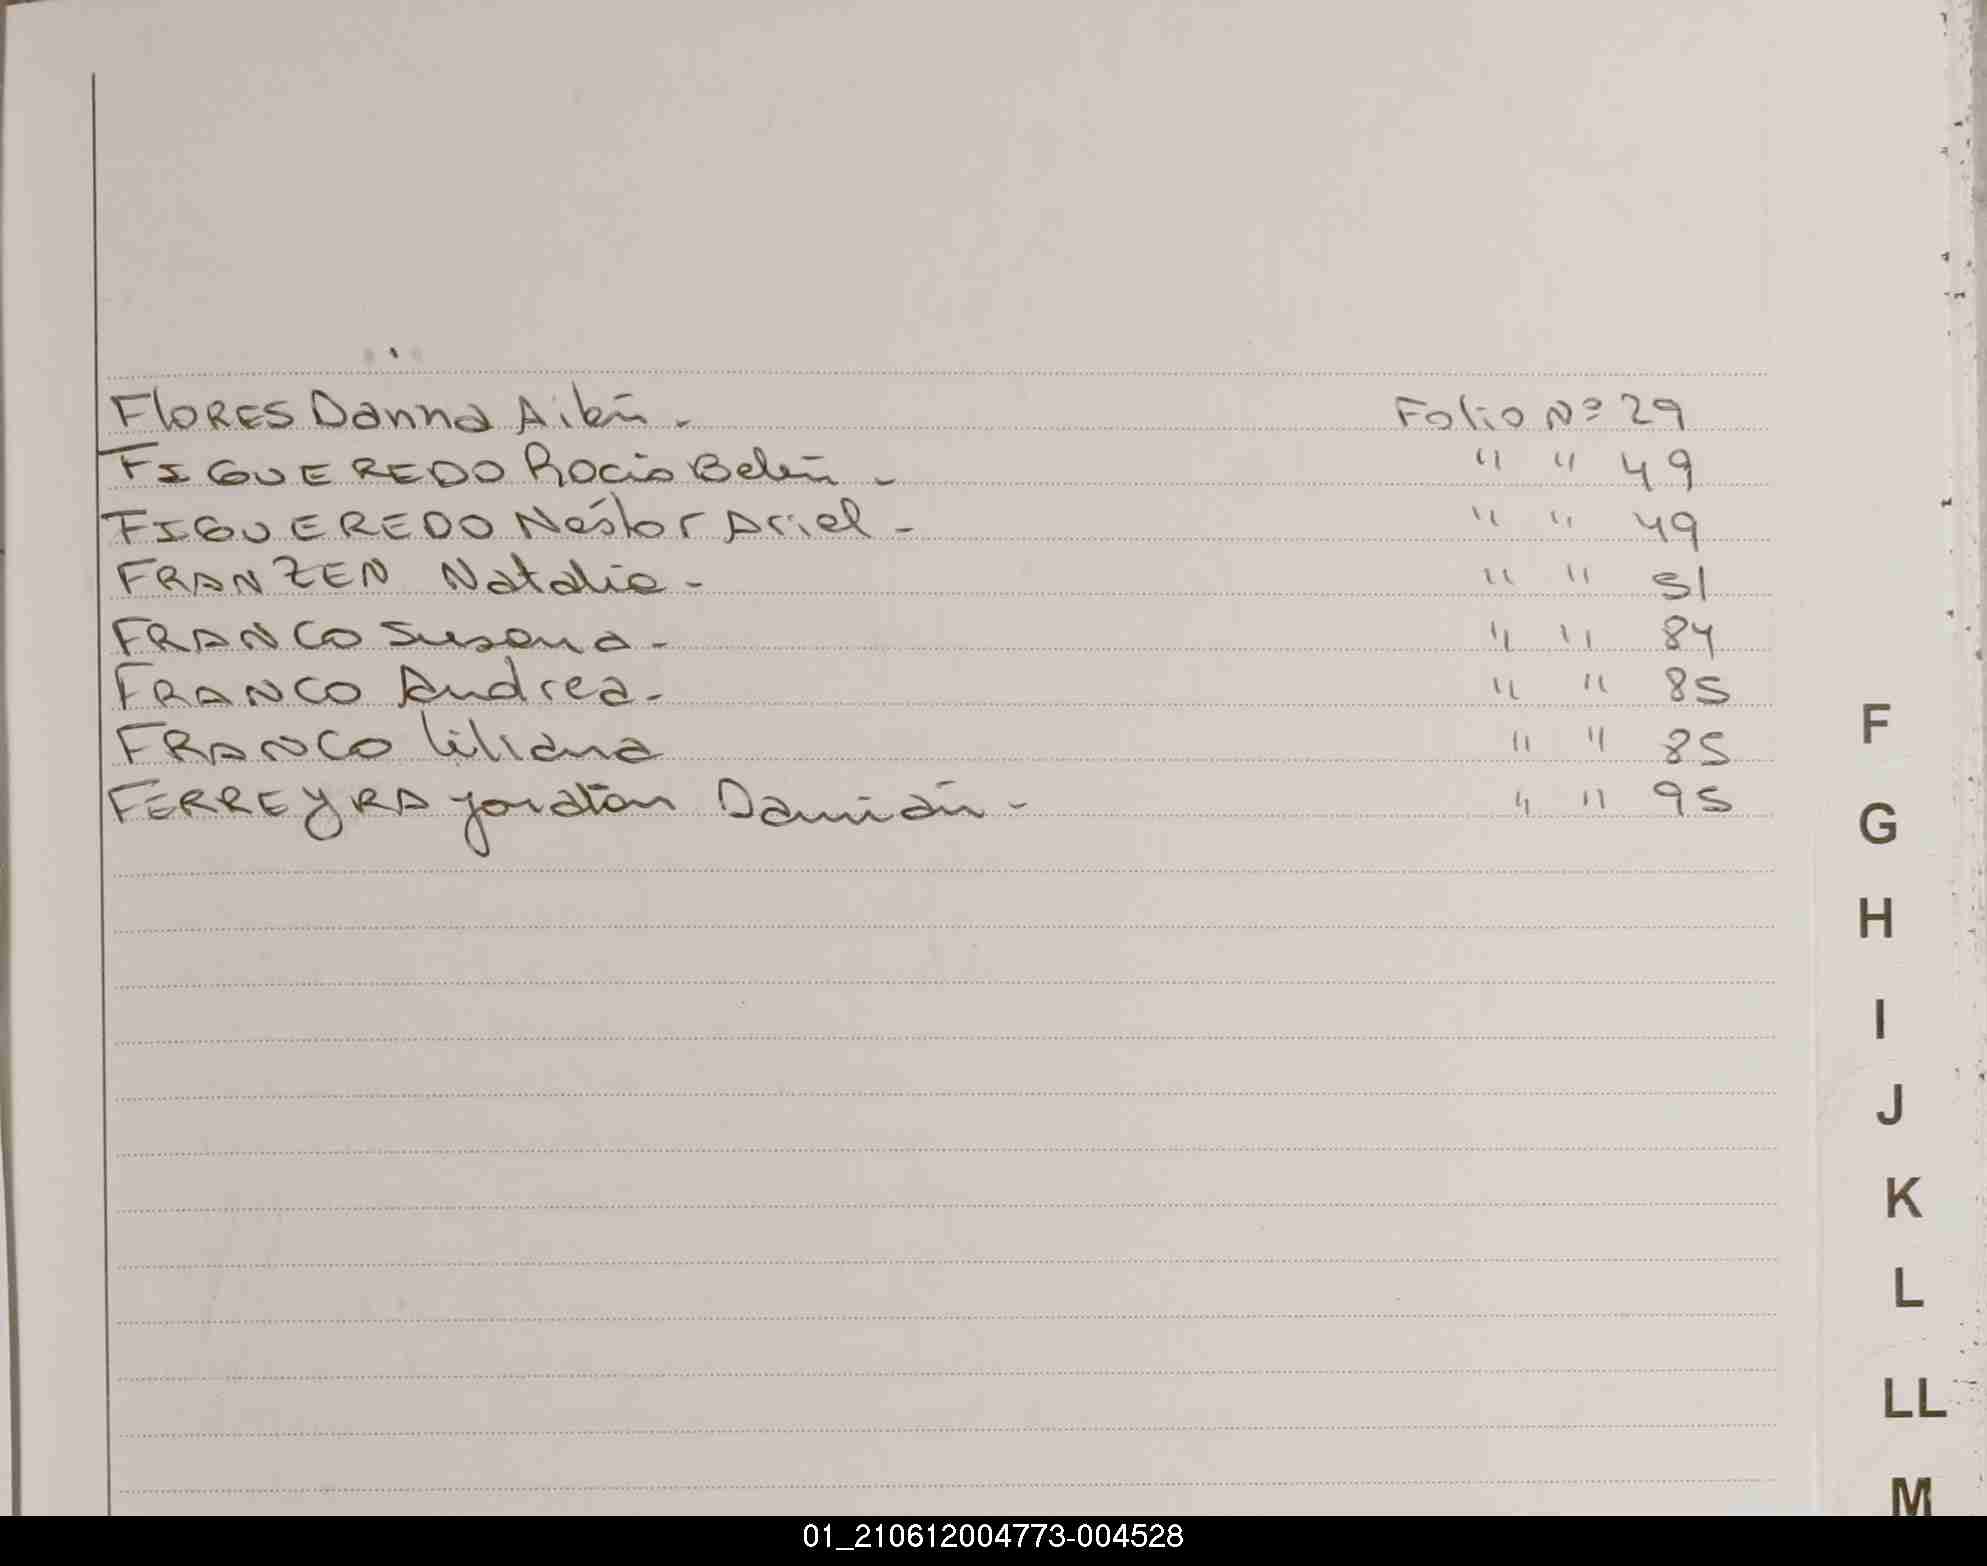 FLORES Danna Ailén. Folio Nº 29
FIGUEREDO Rocio Belén - " " 49
FIGUEREDO Néstor Ariel - " " 49
FRANZEN Natalia - " " 51
FRANCO Susana - " " 84
FRANCO Andrea - " " 85
FRANCO Liliana " " 85
FERREYRA Damián - " " 95
F
G
H
I
J
K
L
LL
M
01_210612004773-004528